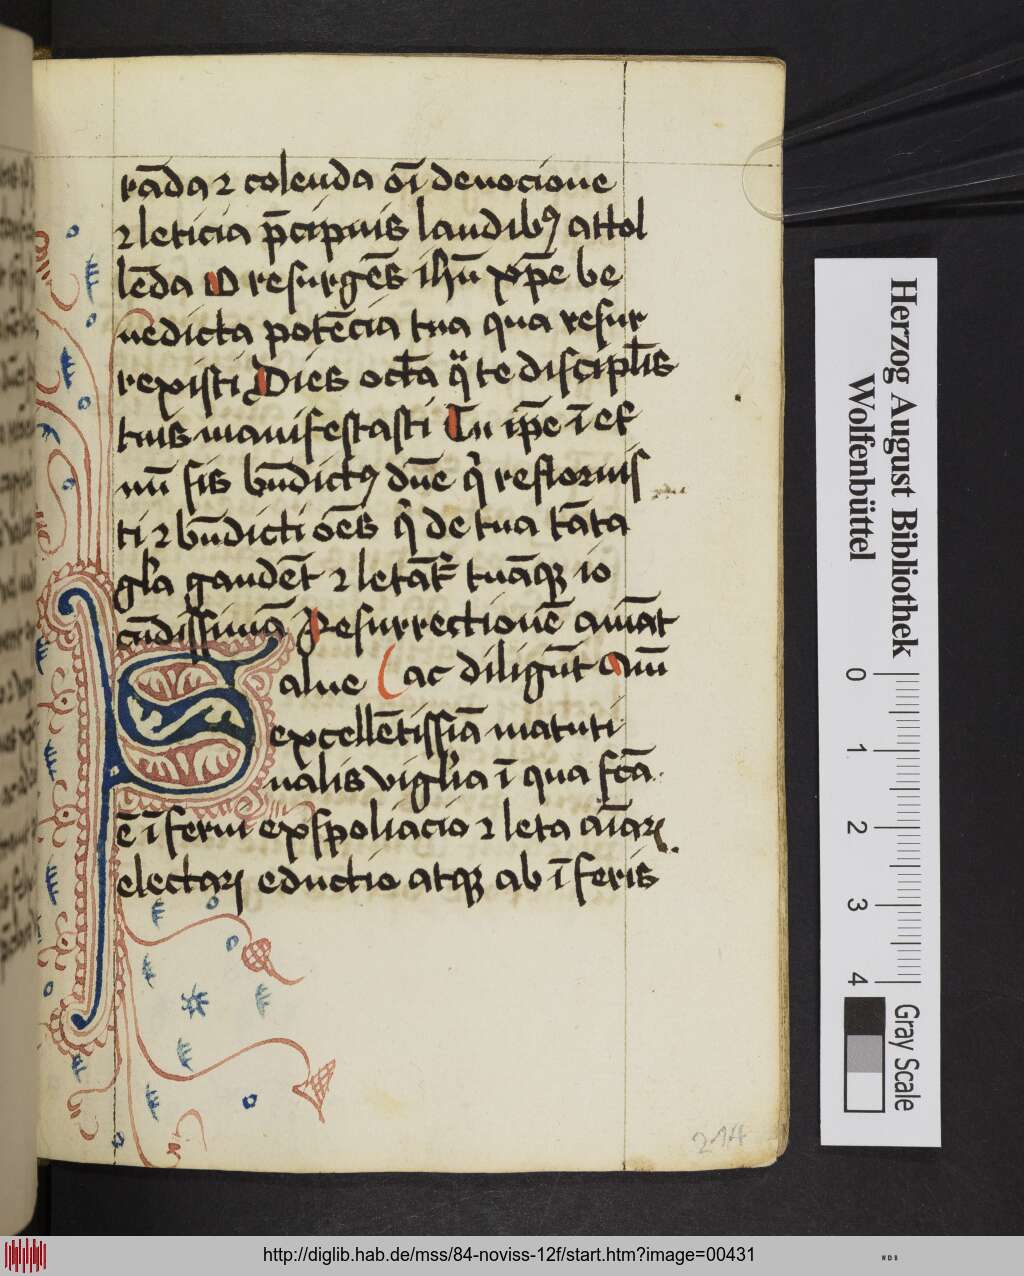 rādaꝛ ⁊ colenda oī deuocione
⁊ leticia p̄cipuis laudibꝰ attol
lēda O resurgēs ihū xp̄e be
nedicta potēcia tua qua resur
rexisti Dies octā q̈ te discipl̄is
tuis manifestasti Tu ip̄e ī et̄
nū sis bn̄dictꝰ dn̄e q̇ refloruis
ti ⁊ bn̄dicti oēs q̇ de tua tāta
gl̄a gaudēt ⁊ letāt᷑ tuāqꝫ io
cūdissimā Resurrectionē amāt
Salue (ac diligūt Aīū
excellētissīa matuti
nalis vigl̓ia ī qua fc̄a
ē īferni exspoliacio ⁊ leta aīaꝝ
electaꝝ eductio atqꝫ ab īferis
214
Herzog August Bibliothek
Wolfenbüttel
0 1 2 3 4
Gray Scale
http://diglib.hab.de/mss/84-noviss-12f/start.htm?image=00431